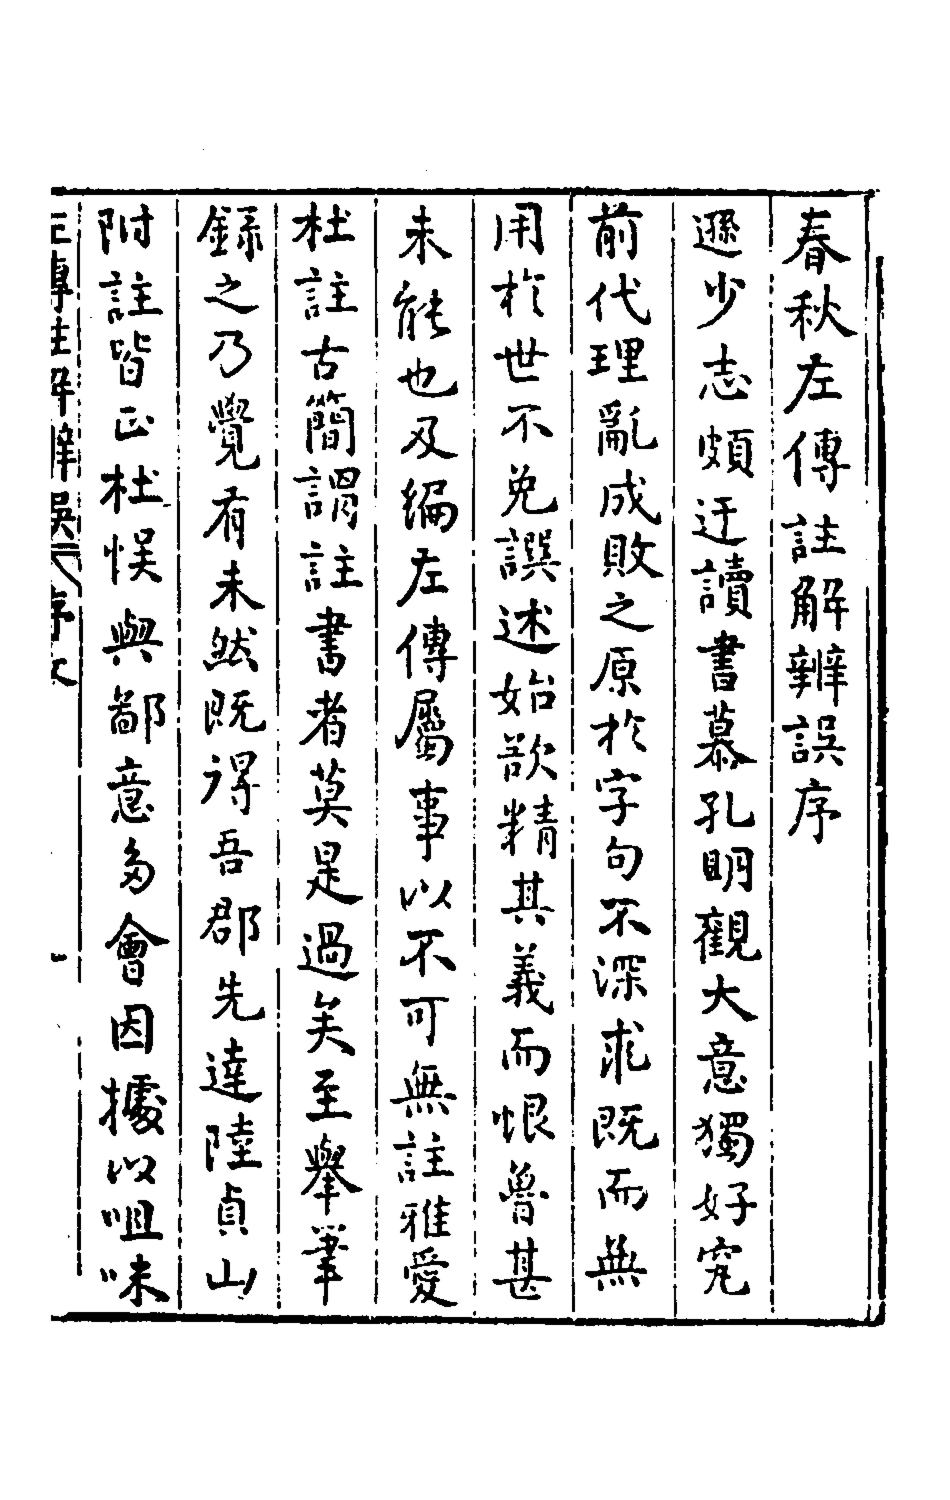 春秋左傳註解辨誤序
遜少志頗迂讀書慕孔明觀大意獨好究
前代理亂成敗之原於字句不深求既而無
用於世不免譔述始欲精其義而恨魯甚
未能也及編左傳屬事以不可無註雅愛
杜註古簡謂註書者莫是過矣至舉筆
錄之乃覺有未然既得吾郡先達陸貞山
附註皆正杜悮與鄙意多會因據以咀味
左傳註解辨誤 序文 一